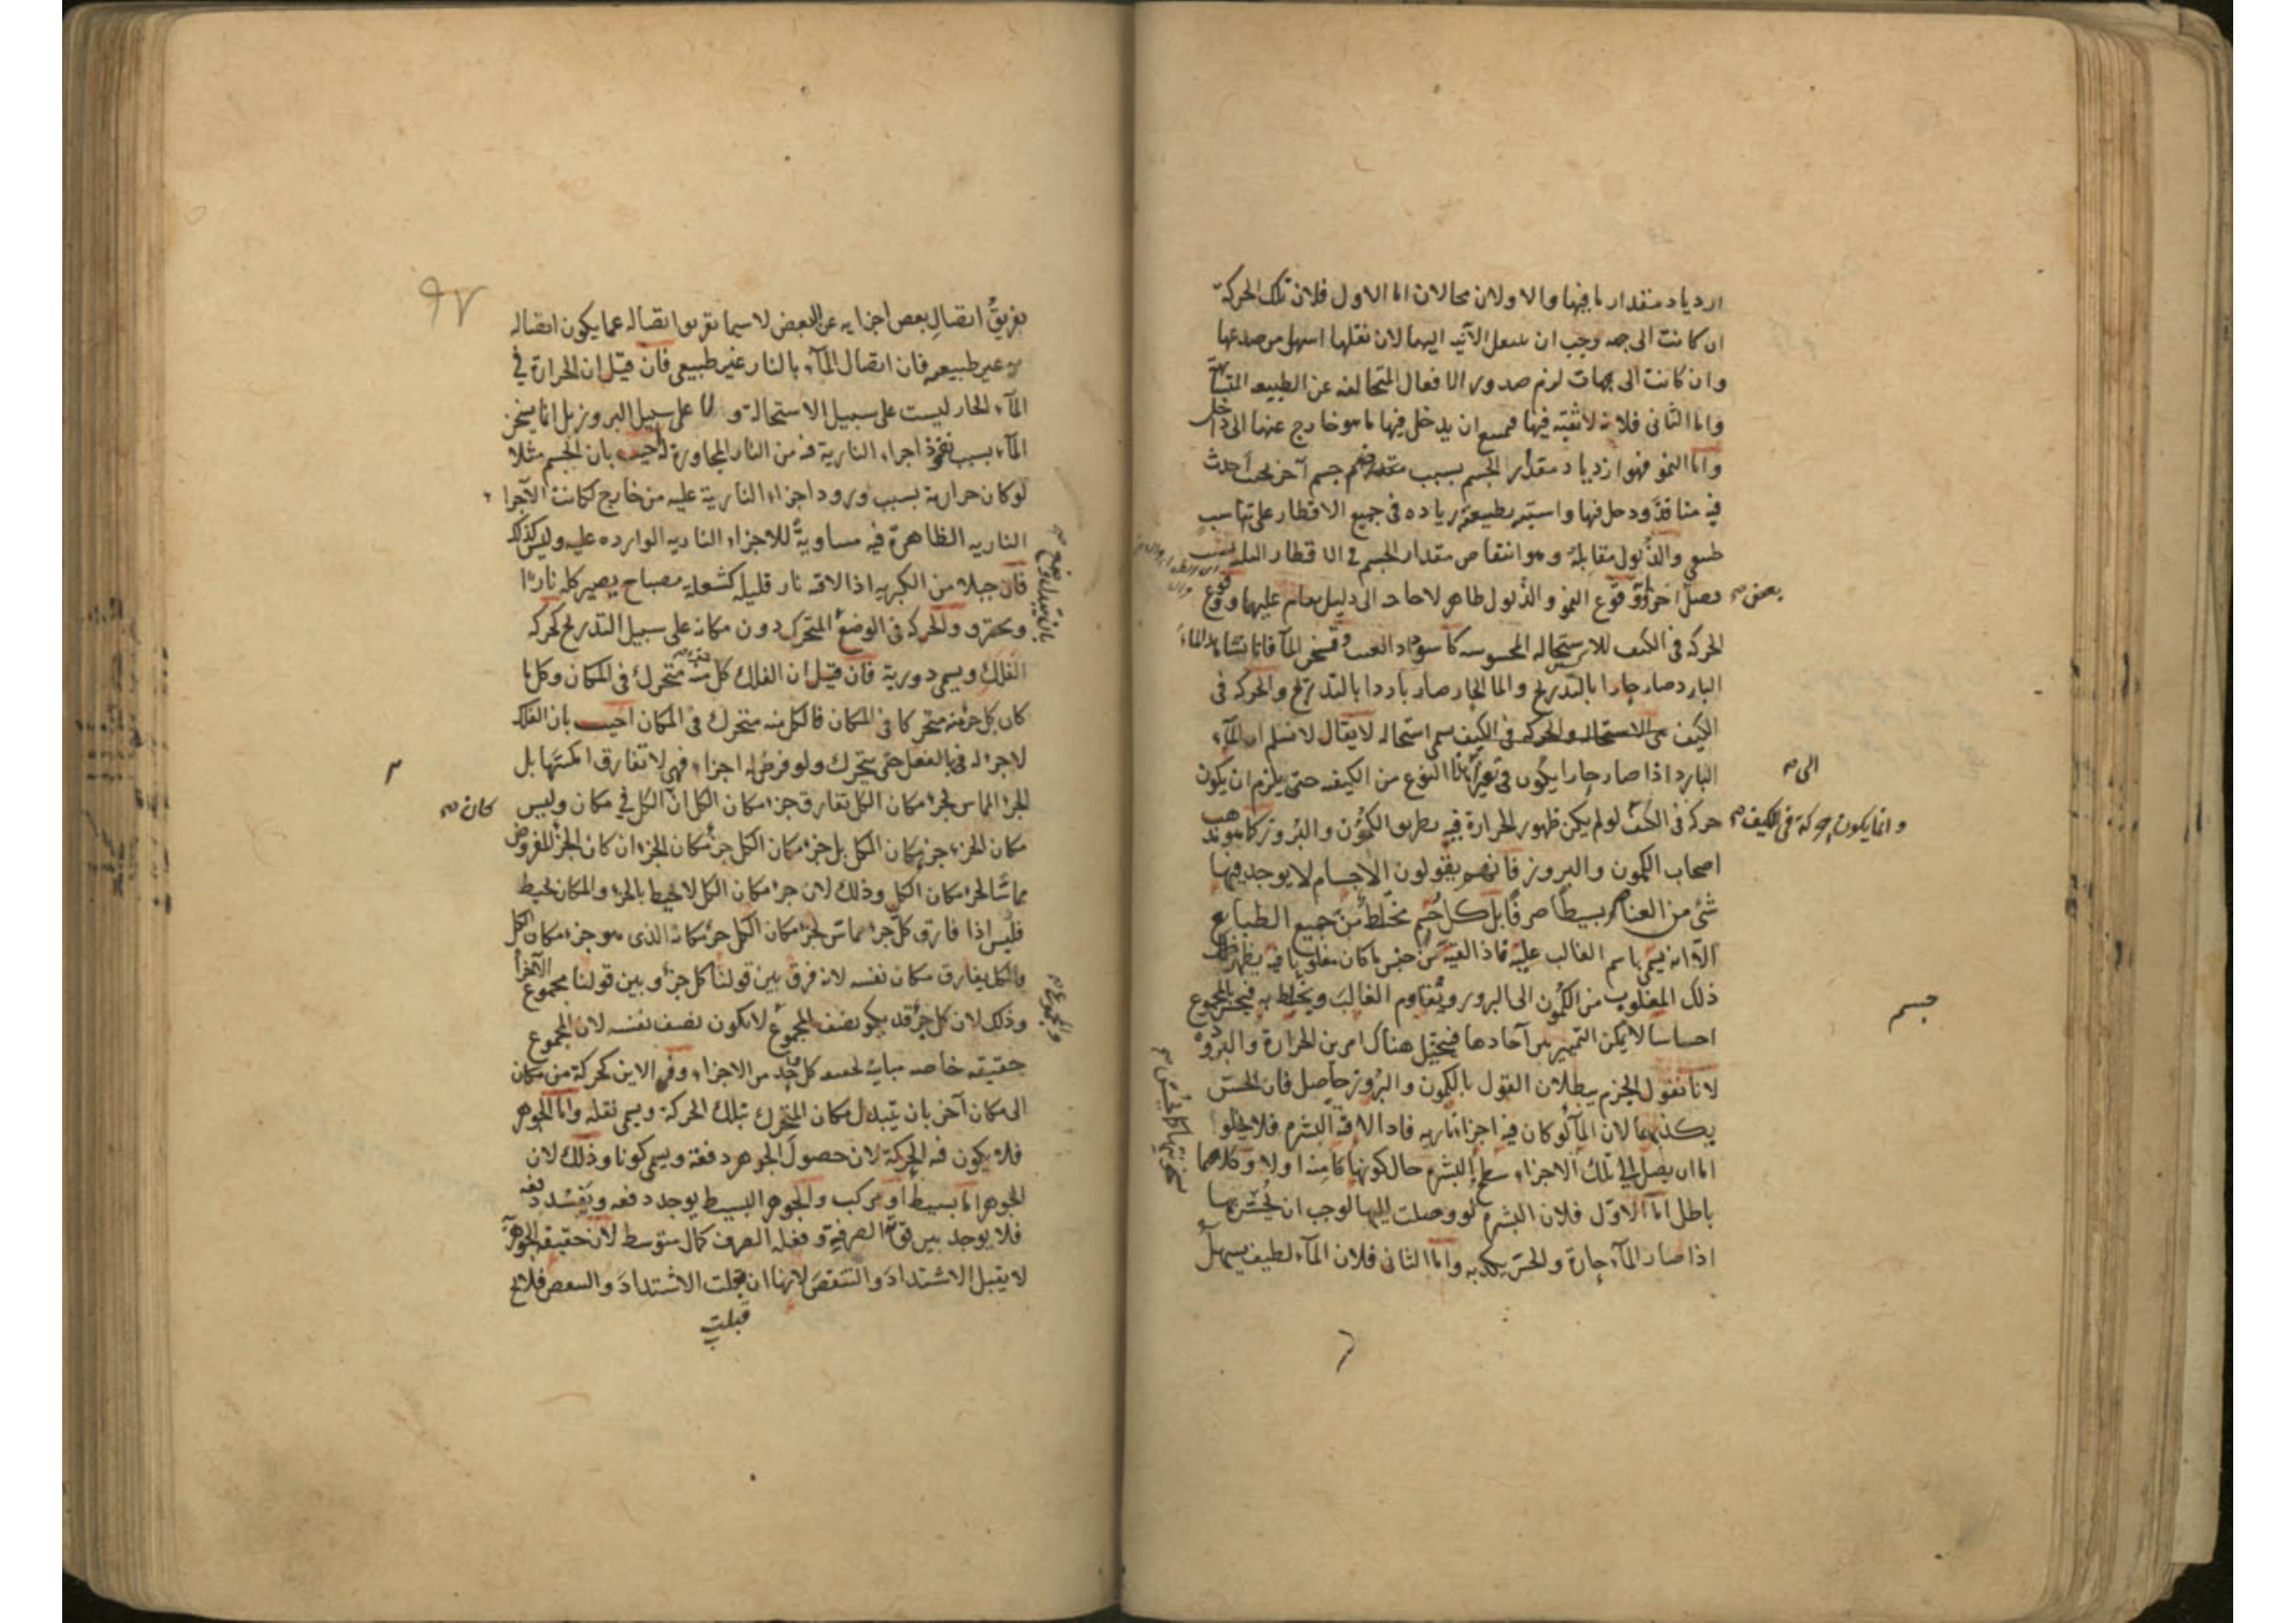 ازدياد مقدار ما فيها والاولان محالان اما الاول فلان تلك الحركة
ان كانت الى جهة وجب ان ينتقل اليها لان نقلها اسهل من صدعها
وان كانت الى جهات لزم صدور الافعال المتخالفة عن الطبيعة المتشابهة
واما الثانى فلانه لا ثقبة فيها فيمتنع ان يدخل فيها ما هو خارج عنها الى داخل
واما النمو فهو ازدياد مقدار الجسم بسبب جسم آخر بحيث احدث
فيه منافذ ودخل فيها واستبه بطبيعته زيادة فى جميع الاقطار على تناسب
طبيعى والذبول مقابله وهو انتقاص مقدار الجسم فى الاقطار الثلثة بسبب
وقوع النمو والذبول ظاهر لا حاجة الى دليل يقام عليها ووقوع
الحركة فى الكيف للاستحالة المحسوسة كاسوداد العنب وتسخن الماء فانا نشاهد الماء
البارد صار حارا بالتدريج والماء الحار صار باردا بالتدريج والحركة فى
الكيف هى الاستحالة والحركة فى الكيف يسمى استحالة لا يقال لا نسلم ان الماء
البارد اذا صار حارا يكون فى تغير هذا النوع من الكيفية حتى يلزم ان يكون
حركة فى الكيف لو لم يكن ظهور الحرارة فيه بطريق الكمون والبروز كما هو مذهب
اصحاب الكمون والبروز فانهم يقولون الاجسام لا يوجد فيها
شئ من العناصر بسيطا صرفا بل كل جسم مختلط من جميع الطبايع
الا انه يسمى باسم الغالب عليه فاذا لقيه من جنس ما كان مغلوبا فيه يظهر ذلك
ذلك المغلوب من الكمون الى البروز ويقاوم الغالب ويختلط به فيحس المجموع
احساسا لا يمكن التمييز بين آحادها فيتخيل هناك امر بين الحرارة والبرودة
لانا نقول الجزم ببطلان القول بالكمون والبروز حاصل فان الحس
يكذبهما لان الماء لو كان فيه اجزاء نارية فاذا لاقته البشرة فلا يخلو
اما ان يصل الى تلك الاجزاء سطح البشرة حال كونها كامنة او لا وكلاهما
باطل اما الاول فلان البشرة لو وصلت اليها لوجب ان يحس بها
اذا صار الماء حارة والحس يكذبه واما الثانى فلان الماء لطيف يسهل
بعض صح
الى صح
وانما يكون حركة فى الكيف صح
جسم
٩٧
تفريق اتصال بعض اجزايه عن البعض لا سيما تفريق اتصاله عما يكون اتصاله
به غير طبيعى فان اتصال الماء بالنار غير طبيعى فان قيل ان الحرارة فى
الماء الحار ليست على سبيل الاستحالة ولا على سبيل البروز بل انما يسخن
الماء بسبب نفوذ اجزاء النارية فيه من النار المجاورة له اجيب بان الجسم مثلا
لو كان حرارته بسبب ورود اجزاء النارية عليه من خارج لكانت الاجزاء
النارية الظاهرة فيه مساوية للاجزاء النارية الواردة عليه وليس كذلك
فان جبلا من الكبريت اذا لاقته نار قليلة كشعلة مصباح يصير كله نارا
ويحترق والحركة فى الوضع المتحرك دون مكانه على سبيل التدريج كحركة
الفلك ويسمى دورية فان قيل ان الفلك كل جزء منه متحرك فى المكان وكل ما
كان كل جزء منه متحركا فى المكان فالكل منه متحرك فى المكان اجيب بان الفلك
لا جزء له بالفعل حتى يتحرك ولو فرض له اجزاء فهى لا تفارق امكنتها بل
الجزء المماس لجزء مكان الكل تفارق جزء مكان الكل ان الكل فى مكان وليس
مكان الجزء جزء مكان الكل بل جزء مكان الكل جزء مكان الجزء ان كان الجزء المفروض
مماسا لجزء مكان الكل وذلك لان جزء مكان الكل لا يحيط بالجزء والمكان محيط
فليس اذا فارق كل جزء مماس لجزء مكان الكل جزء مكانه الذى هو جزء مكان الكل
والكل يفارق مكان نفسه لانه فرق بين قولنا كل جزء وبين قولنا مجموع الاجزاء
وذلك لان كل جزء قد يكون نصف المجموع لا يكون نصف نفسه لان المجموع
حقيقة خاصة مباينة لحقيقة كل واحد من الاجزاء وفى الاين كحركة من مكان
الى مكان آخر بان يتبدل مكان المتحرك بتلك الحركة ويسمى نقلة واما الجوهر
فلا يكون فيه الحركة لان حصول الجوهر دفعة ويسمى كونا وذلك لان
الجوهر اما بسيط او مركب والجوهر البسيط يوجد دفعة ويفسد دفعة
فلا يوجد بين قوته الصرفة وفعله الصرف كمال متوسط لان حقيقة الجوهر
لا يقبل الاشتداد والتنقص لانها ان قبلت الاشتداد والتنقص فلا يخ
قبلت
بان يتبدل وضع صح
كان صح
والمجموع صح